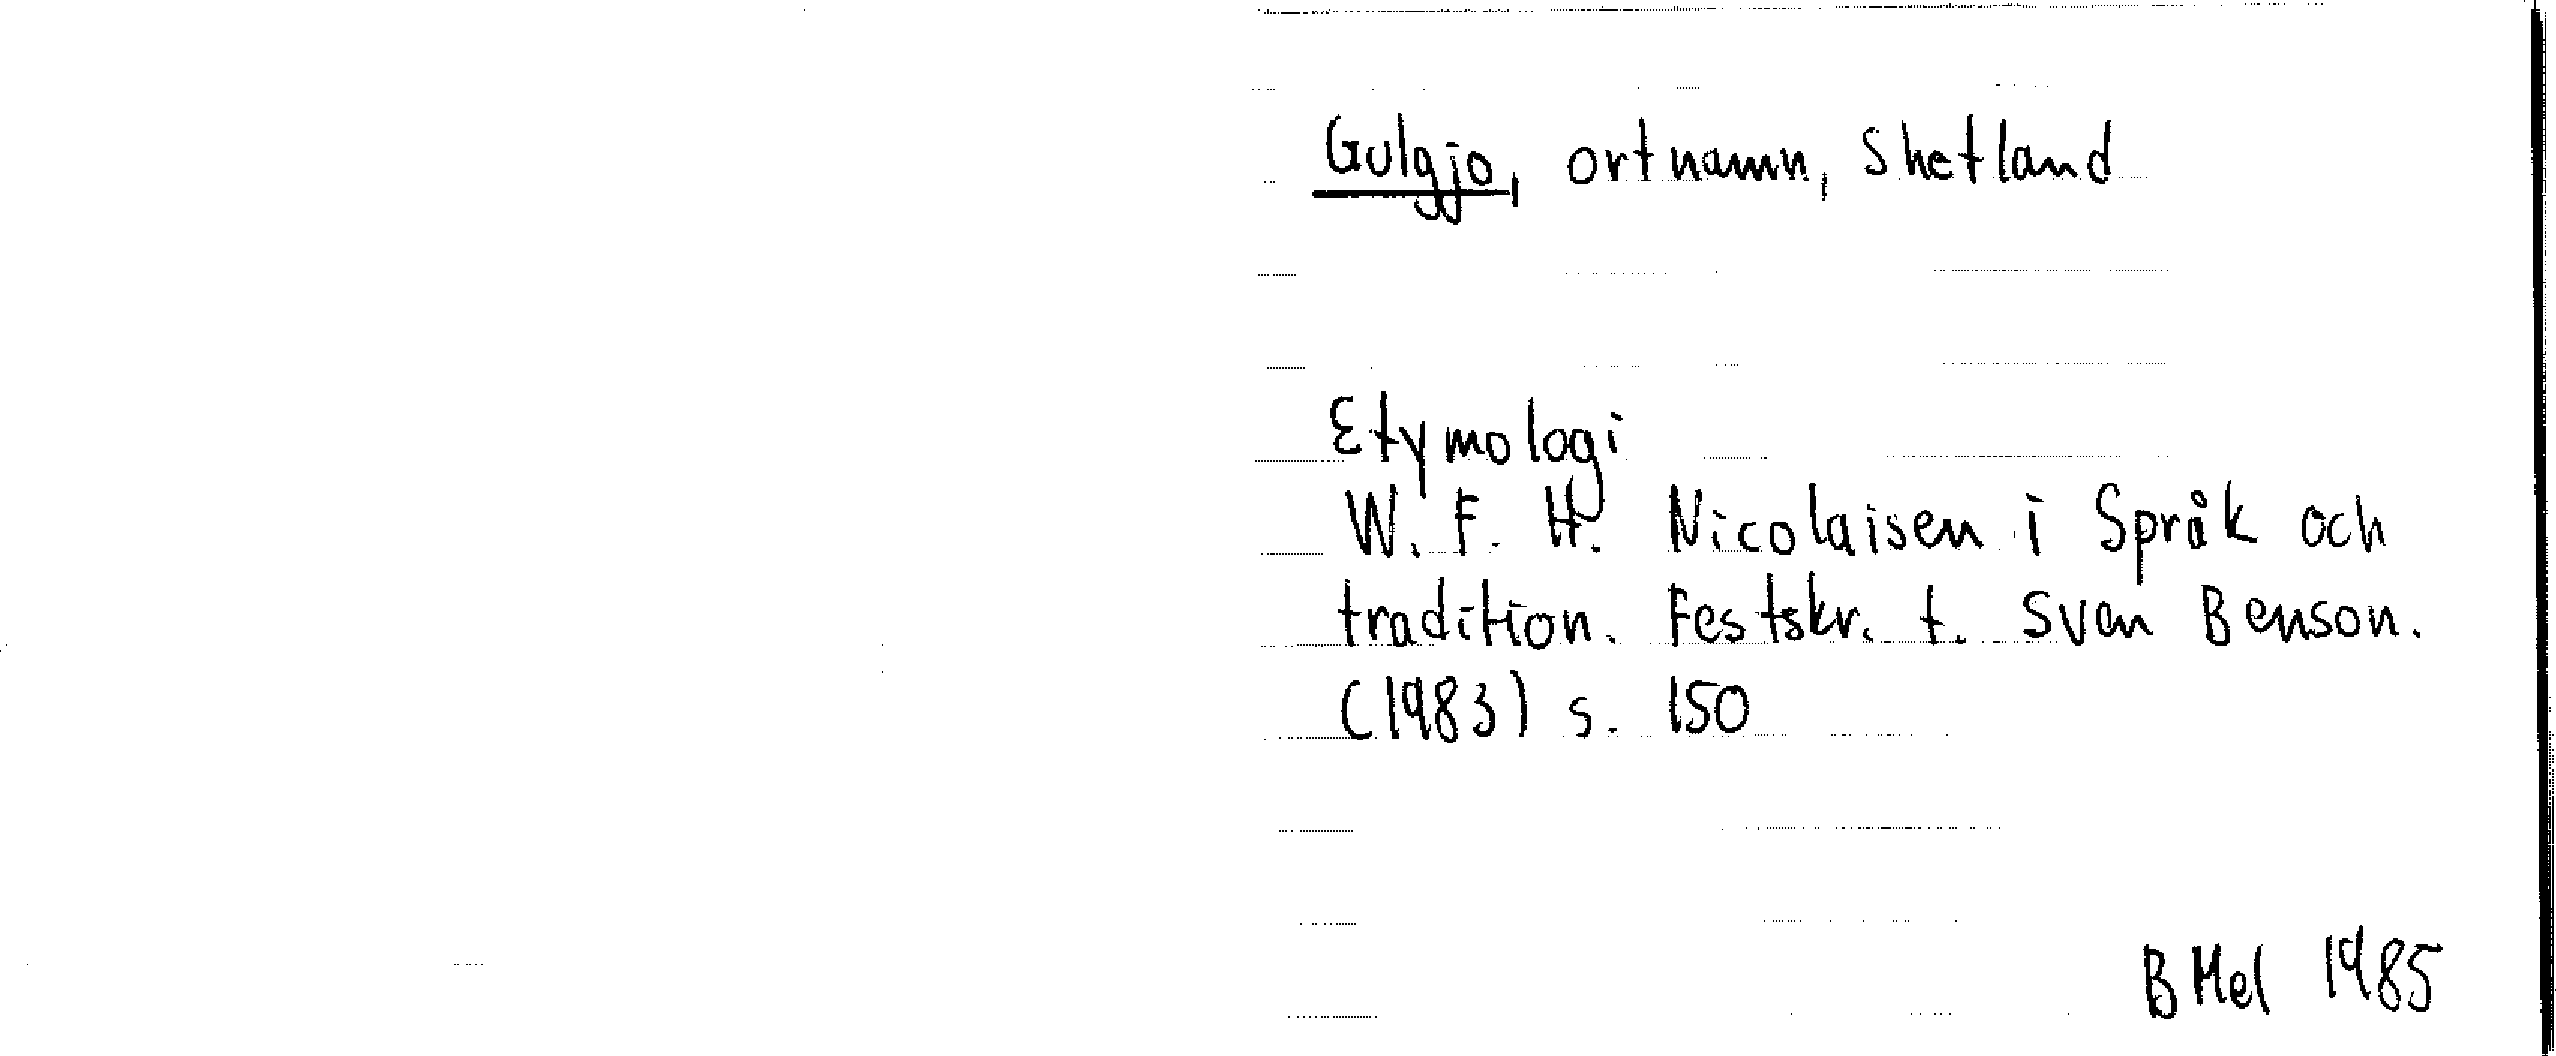 Gulgjo, ortnamn, Shetland
Etymologi
W. F. H. Nicolaisen i Språk och
tradition. Festskr. t. Sven Benson.
(1983) s. 150
B Mel 1985